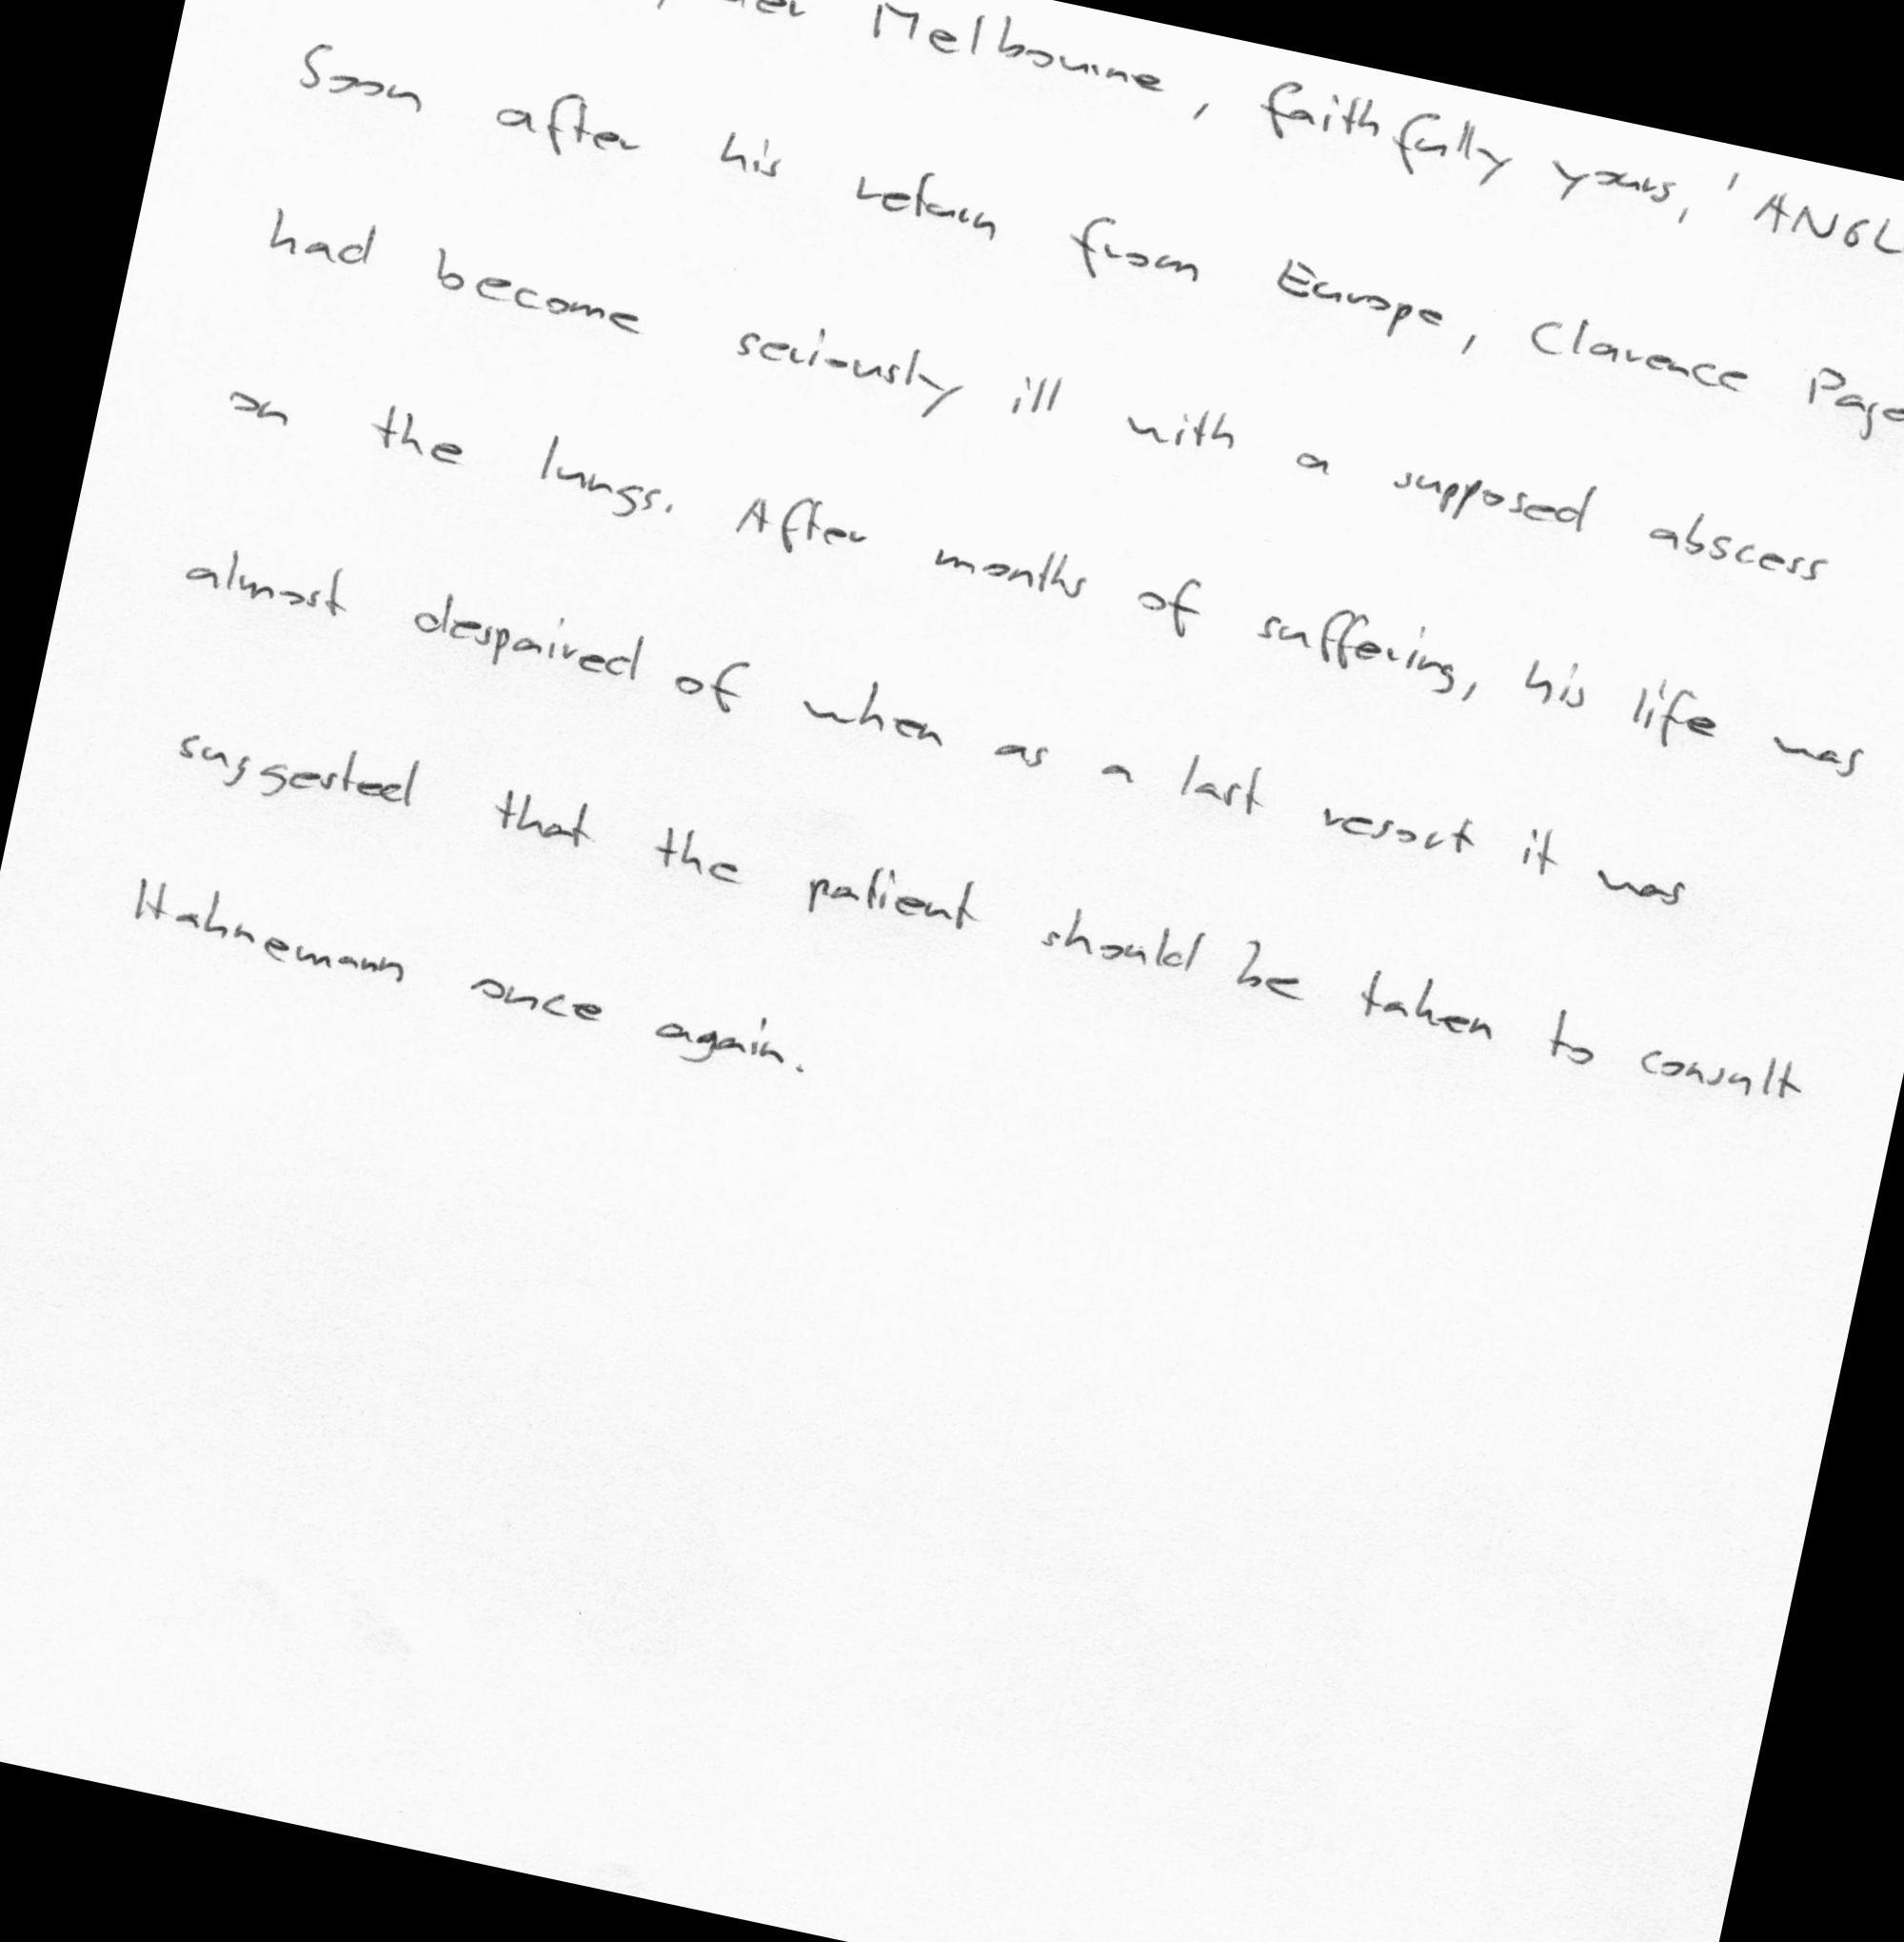 Melbourne, faithfully yours, 'ANGL
Soon after his return from Europe, Clarence Page
had become seriously ill with a supposed abscess
on the lungs. After months of suffering, his life was
almost despaired of when as a last resort it was
suggested that the patient should be taken to consult
Hahnemann once again.